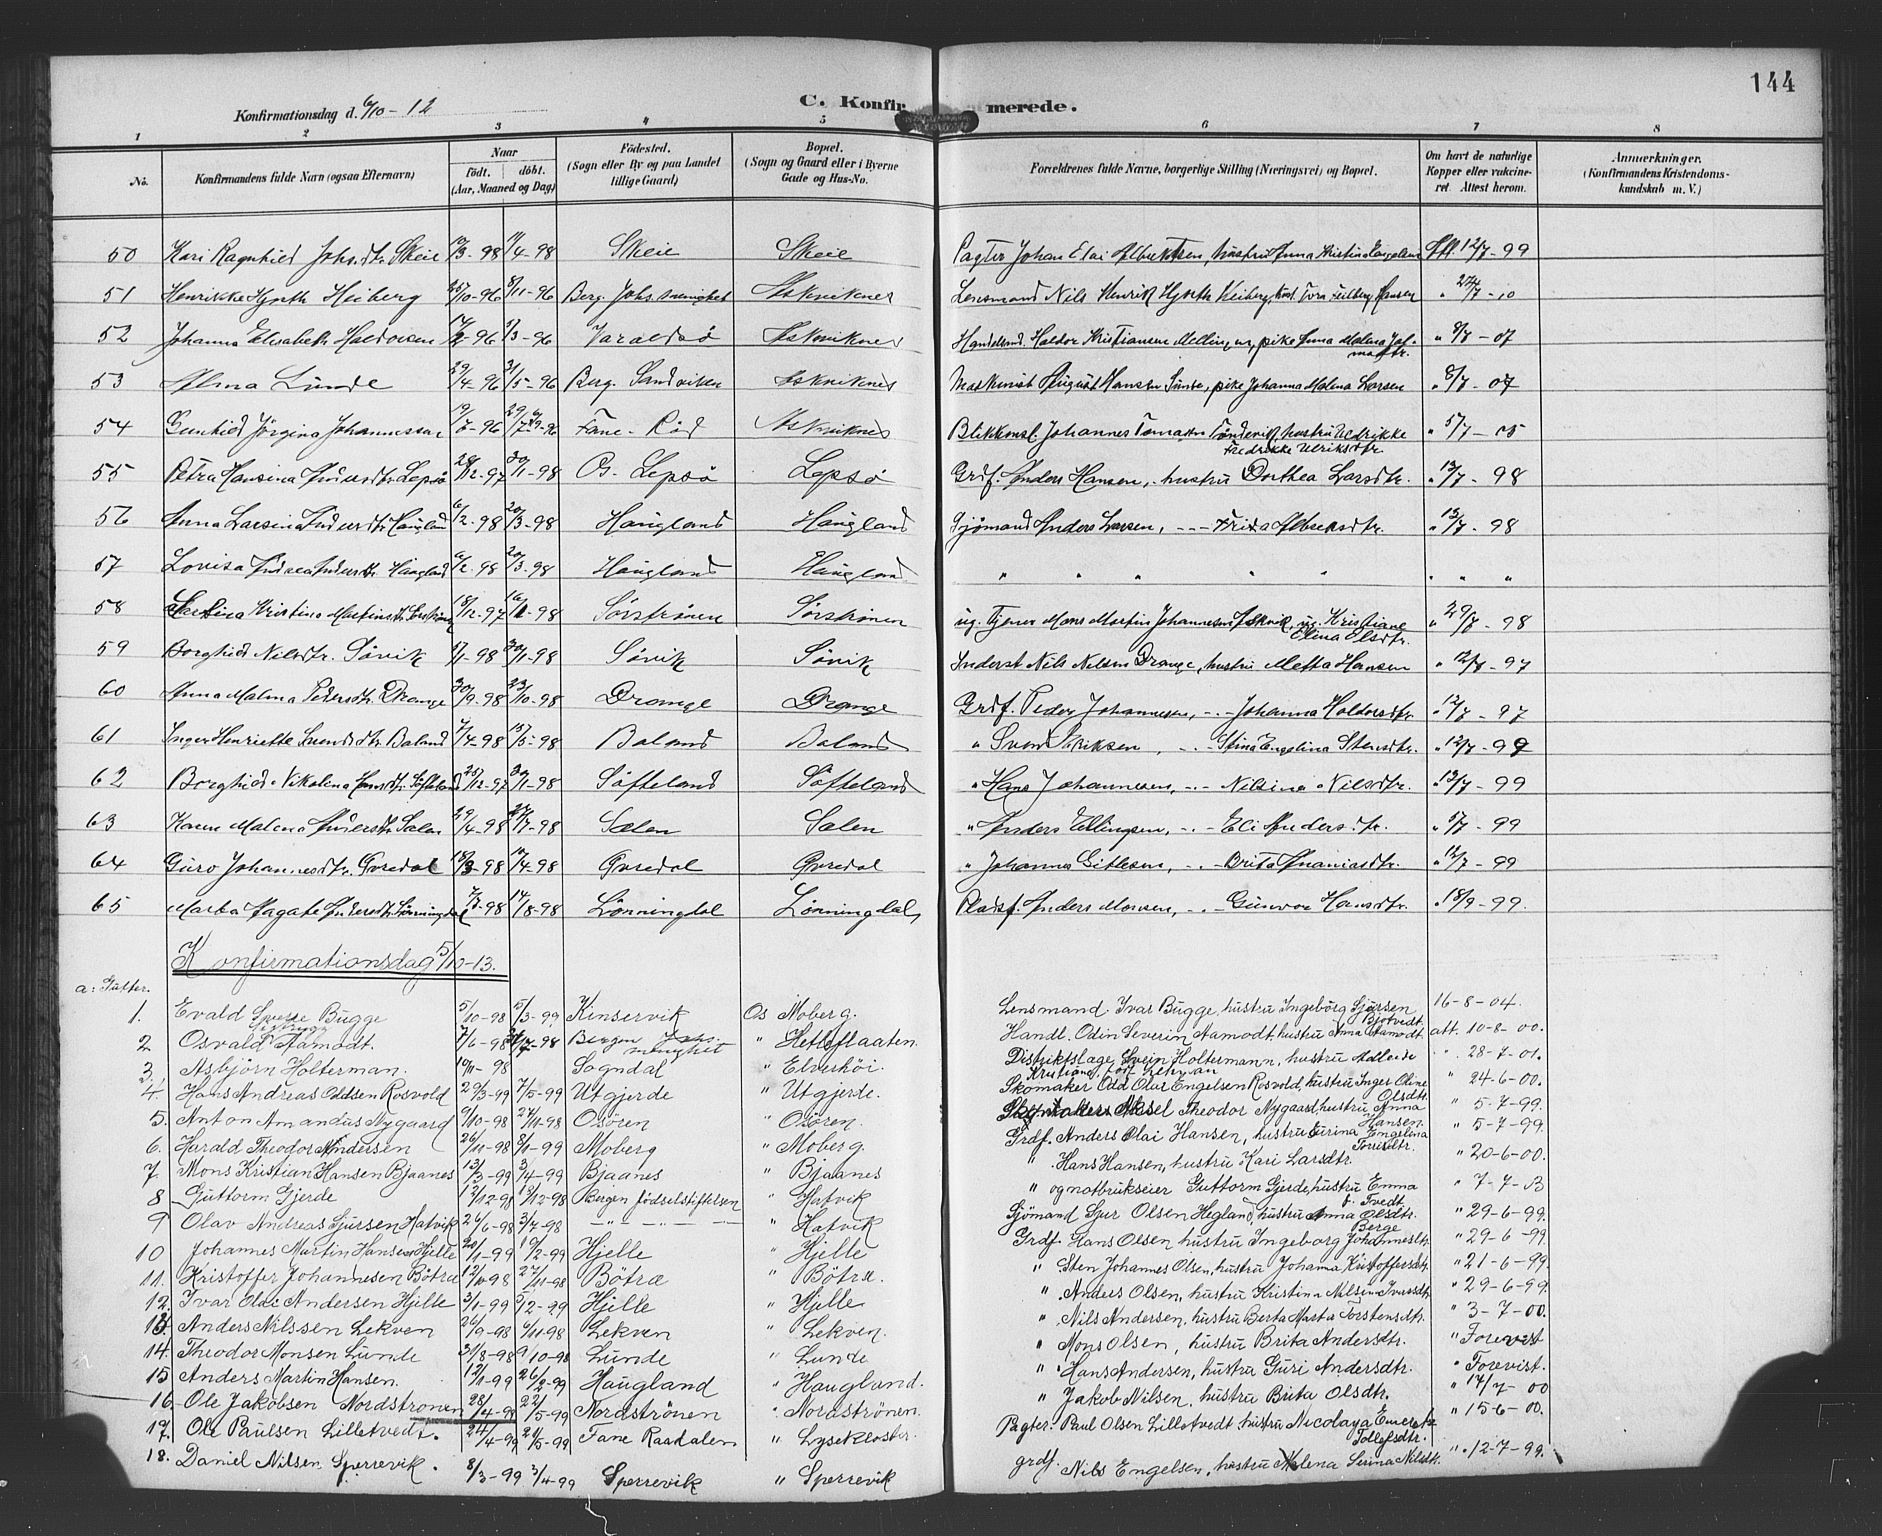 144
Konfirmationsdag d. 6/10 - 12
C. Konfirmerede.
1 2 3 4 5 6 7 8
No. Konfirmandens fulde Navn (ogsaa Efternavn) Naar født. døbt. (Aar, Maaned og Dag) Fødested. (Sogn eller By og paa Landet tillige Gaard) Bopæl. (Sogn og Gaard eller i Byerne Gade og Hus-No. Forældrenes fulde Navne, borgerlige Stilling (Næringsvei) og Bopæl. Om havt de naturlige Kopper eller vaccineret. Attest herom. Anmærkninger. (Konfirmandens Kristendomskundskab m. V.)
50 Kari Ragnhild Johs.dtr. Skeie 98 4-98 Skeie Skeie Pagter Johan Elai Albriktsen, hustru Anna Kristina 12/7-99
51 Henrikke Hjorth Heiberg 10-96 8/11-96 Berg. Johs. menighet Askviknes Lensmand Nils Henrik Hjorth Heiberg, Tora Feilberg Hansen
52 Johanna Elisabeth Haldorsen 96 3-96 Varaldsö Askviknes Handelsmd. Haldor Kristiansen Mellingen, pike Anna Malena " 8/7-07
53 Alma Lunde 29/4-96 31/5-96 Berg. Sandviken Askviknes Maskinist August Hansen Lunde, pike Johanna Malena Larsen " 8/7-07
54 Gunhild Jörgina Johannessen 96 Fane - Röd Askviknes Blikkensl. Johannes hustru Fredrikke Ulriksdtr. " 5/7-05
55 Petra Hansina Andersdtr. Lepsö 12-97 1-98 Os. Lepsö Lepsö Grdf. Anders Hansen, hustru Dorthea Larsdtr. " 13/7-98
56 Anna Larsina Andersdtr. Haugland 6/2-98 20/3-98 Haugland Haugland Sjömand Anders Larsen, - - - " 13/7-98
57 Lovisa Andrea Andersdtr. Haugland 6/2-98 20/3-98 Haugland Haugland " " " " " " " "
58 Kristina Martinsdtr. 18/12-97 98 Sörströnen Sörströnen ug. Tjener Mons Martin Johannesen Askvik, ug. Kristiane Elina Olsdtr. " 29/7-98
59 Borghild Nilsdtr. Sövik 1-98 98 Sövik Sövik Inderst Nils Nilsen Drange, hustru Metta Hansen " 12/7-97
60 Anna Malena Pedersdtr. Drange 30/9-98 23/10-98 Drange Drange Grdf. Peder Johannesen, - Johanna Haldorsdtr. " 12/7-97
61 Inger Henriette Svendsdtr. Boland 4-98 98 Boland Boland " Svend Eriksen, - Stina Engelina Stensdtr. " 12/7-99
62 Borghild Nikolina Hansdtr. Söfteland 12-97 98 Söfteland Söfteland " Hans Johannesen, - Nilsina Nilsdtr. " 13/7-99
63 Karen Malena Andersdtr. Salen 29/4-98 98 Salen Salen " Anders Ellingsen, - Eli Andersdtr. " 5/7-99
64 Guro Johannesdtr. Övredal 18/3-98 4-98 Övredal Övredal " Johannes Gitlesen, - Brita Ananiasdtr. " 12/7-99
65 Marta Agate Andersdtr. Lönningdal 98 14/8-98 Lönningdal Lönningdal Pladsf. Anders Monsen, - Gunvor Hansdtr. " 18/9-99.
Konfirmationsdag 5/10-13.
a: Gutter.
1. Evald Sverre Bugge 5/10-98 5/3-99 Kinservik Os Moberg. Lensmand Ivar Bugge, hustru Ingebörg Sjursen 16-8-04.
2 Osvald Aamodt. 7/6-98 98 Bergen Johs. menighet " Hetleflaaten Handl. Odin Severin Aamodt, hustru Anna Aamodt. att. 10-8-00.
3. Asbjörn Holterman. 98 Sogndal " Elverhöi. Distriktslæge Svein Holtermann, hustru " 28-7-01.
4. Hans Andreas Oddsen Rosvold 29/3-99 7/5-99 Utgjerde " Utgjerde. Skomaker Odd Olai Engelsen Rosvold, hustru Inger Oline Olsdtr. " 24-6-00.
5. Anton Amandus Nygaard 9/10-98 27/11-98 Osören " Osören. Aksel Theodor Nygaard, hustru Anna Hansen. " 5-7-99.
6. Harald Theodor Andersen 26/11-98 8/1-99 Moberg " Moberg. Grdf. Anders Olai Hansen, hustru Engelina Torrisdtr. " 5-7-99.
7. Mons Kristian Hansen Bjaanes 13/3-99 3/4-99 Bjaanes " Bjaanes " Hans Hansen, hustru Kari Larsdtr. " 20-6-00.
8 Guttorm Gjerde 12/12-98 98 Bergen födselstiftelsen " Hatvik " og notbrukseier Guttorm Gjerde, hustru Emma f. Tvedt " 7-7-03
9 Olav Andreas Sjursen Hatvik 26/6-98 3/7-98 - - - - " Hatvik Sjömand Sjur Olsen Hegland, hustru Anna Olsdtr. Berge " 29-6-99.
10 Johannes Martin Hansen Hjelle 1-99 2-99 Hjelle " Hjelle Grdf. Hans Olsen, hustru Ingeborg Johannesdtr. " 29-6-99
11. Kristoffer Johannesen Bötræ 12/10-98 27/11-98 Bötræ " Bötræ. " Sten Johannes Olsen, hustru Johanna Kristoffersdtr. " 21-6-99.
12. Ivar Olai Andersen Hjelle 3/1-99 2-99 Hjelle " Hjelle " Anders Olsen, hustru Kristina Nilsina Ivarsdtr. " 29-6-99.
13. Anders Nilssen Lekven 26/9-98 6/11-98 Lekven " Lekven. " Nils Andersen, hustru Berta Marta Torstensdtr. " 3-7-00.
14. Theodor Monsen Lunde 31/8-98 9/10-98 Lunde " Lunde " Mons Olsen, hustru Brita Andersdtr. " Forevist
15 Anders Martin Hansen. 12/1-99 26/2-99 Haugland " Haugland. " Hans Andersen, hustru Guri Andersdtr. " Forevist.
16. Ole Jakobsen Nordströnen 28/4-99 22/5-99 Nordströnen " Nordströnen. " Jakob Nilsen, hustru Brita Olsdtr. " 17/7-00
17. Ole Paulsen Lilletvedt. 24/4-99 21/5-99 Fane Raadalen " Lysekloster. Pagter. Paul Olsen Lilletvedt, hustru Nicolaya Tollefsdtr. " 15-6-00.
18. Daniel Nilsen Sperrevik. 8/3-99 3/4-99 Sperrevik " Sperrevik grdf. Nils Engelsen, hustru Malena Serina Nilsdtr. " 12-7-99.